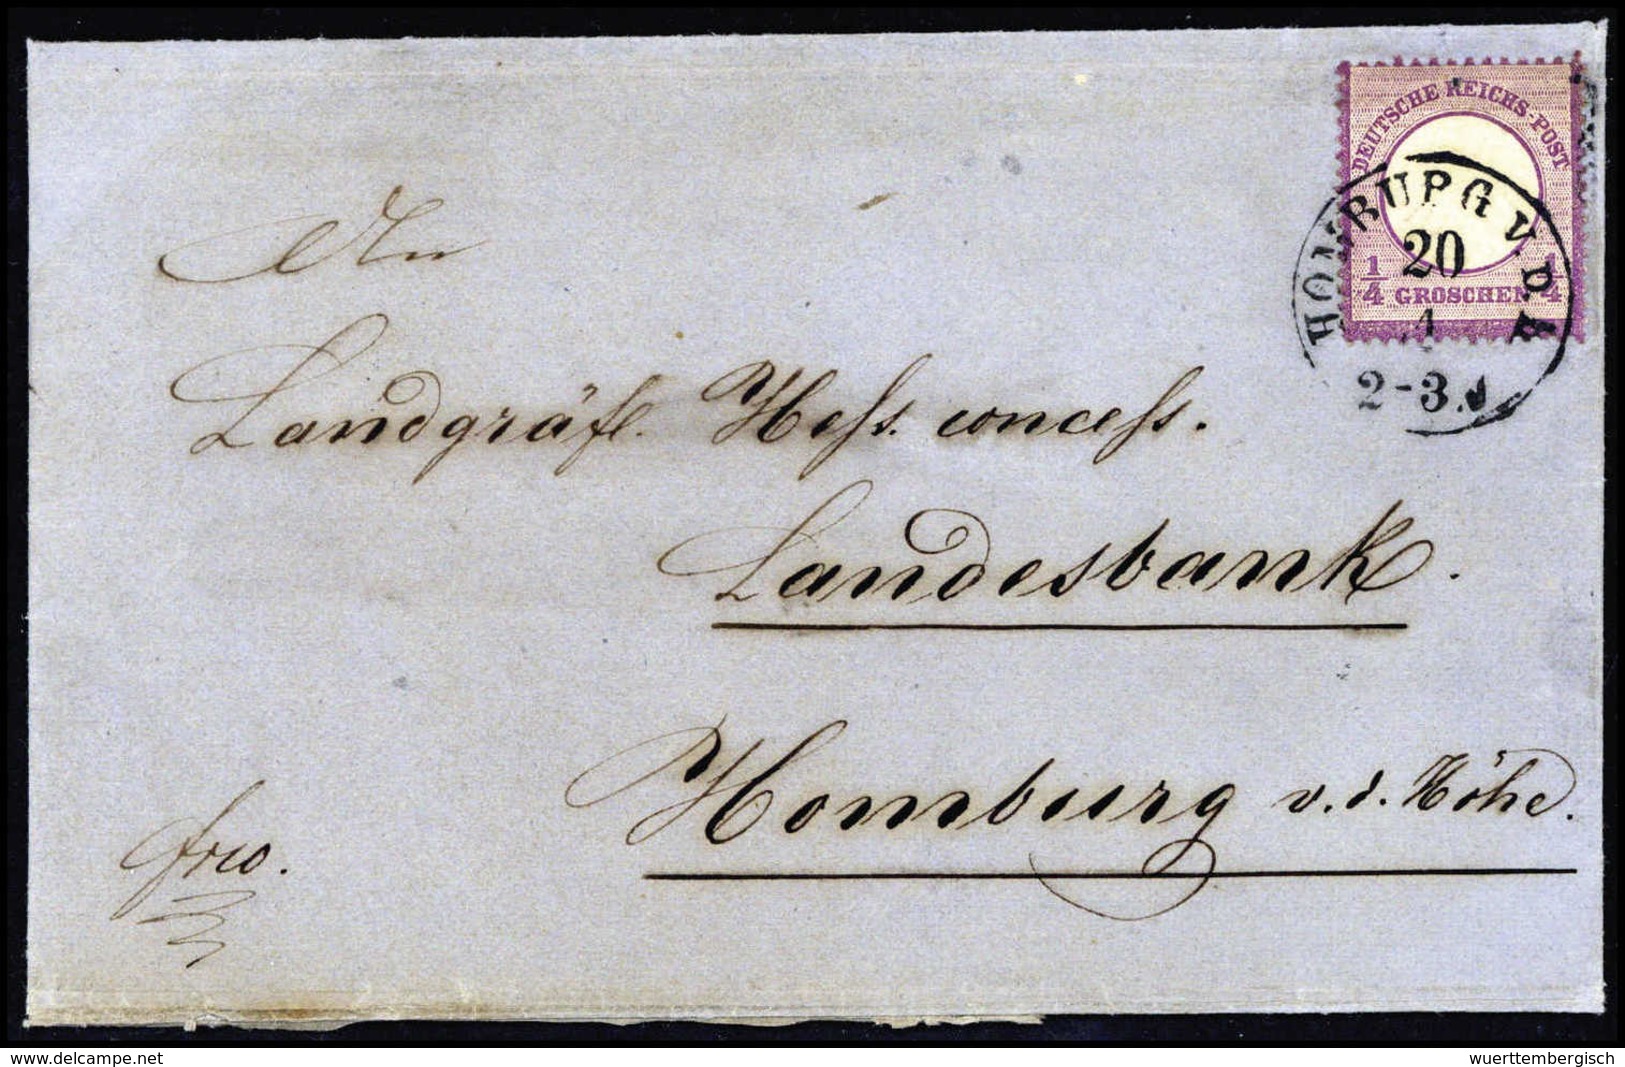 DEUTSCHE REICHS-POST
1/4 GROSCHEN 1/4
HOMBURG V. D. H.
20
1
2-3.
An
Landgräfl. Hess. concess.
Landesbank.
Homburg v. d. Höhe.
frco.
www.delcampe.net
wuerttembergisch